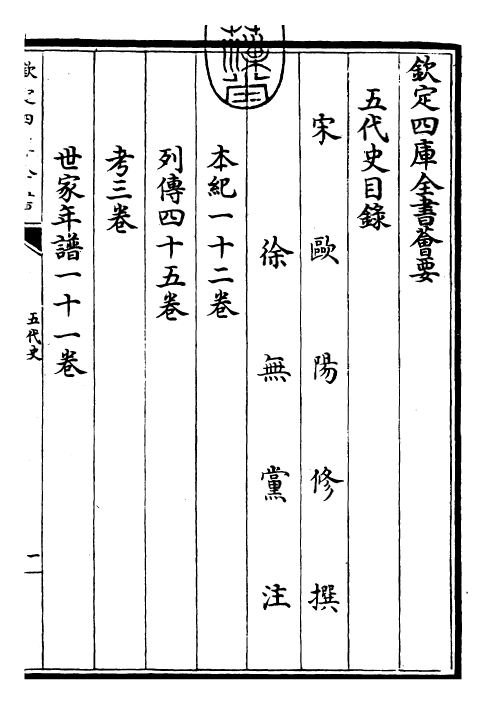 欽定四庫全書薈要
五代史目錄
宋歐陽修撰
徐無黨注
本紀一十二卷
列傳四十五卷
考三卷
世家年譜一十一卷
五代史
一